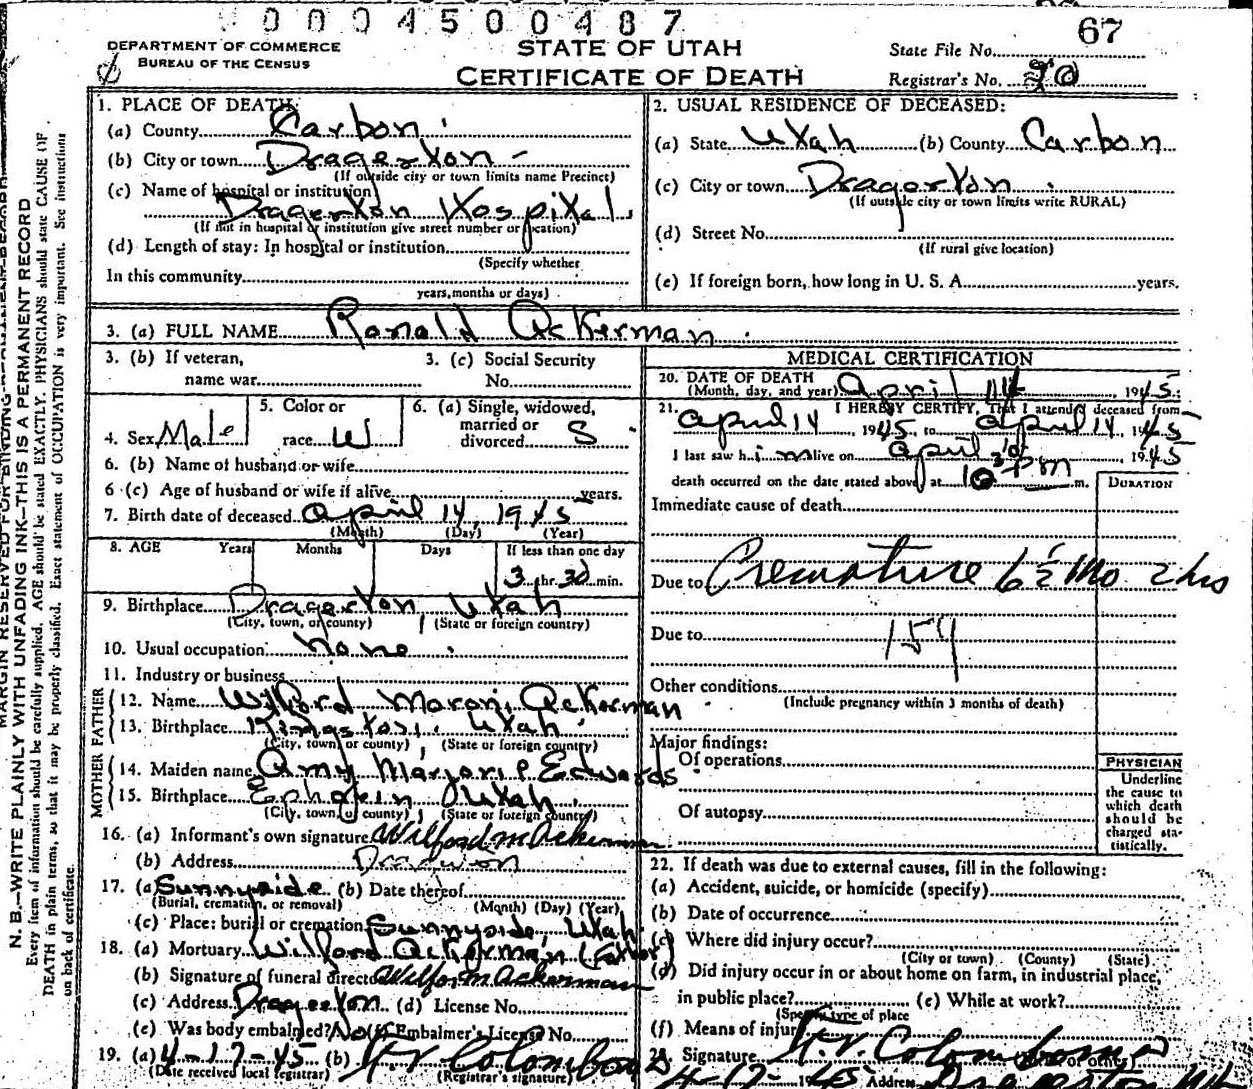 0004500487
67
DEPARTMENT OF COMMERCE
BUREAU OF THE CENSUS
STATE OF UTAH
CERTIFICATE OF DEATH
State File No.
Registrar's No. 90
MARGIN RESERVED FOR BINDING
N. B.—WRITE PLAINLY WITH UNFADING INK—THIS IS A PERMANENT RECORD
Every item of information should be carefully supplied. AGE should be stated EXACTLY. PHYSICIANS should state CAUSE OF
DEATH in plain terms, so that it may be properly classified. Exact statement of OCCUPATION is very important. See instructions
on back of certificate.
1. PLACE OF DEATH:
(a) County Carbon
(b) City or town Dragerton
(If outside city or town limits name Precinct)
(c) Name of hospital or institution
Dragerton Hospital
(If not in hospital or institution give street number or location)
(d) Length of stay: In hospital or institution
(Specify whether
In this community
years, months or days)
2. USUAL RESIDENCE OF DECEASED:
(a) State Utah (b) County Carbon
(c) City or town Dragerton
(If outside city or town limits write RURAL)
(d) Street No.
(If rural give location)
(e) If foreign born, how long in U. S. A. years.
3. (a) FULL NAME Ronald Ackerman
3. (b) If veteran,
name war
3. (c) Social Security
No.
4. Sex Male
5. Color or
race W
6. (a) Single, widowed,
married or
divorced S
6. (b) Name of husband or wife
6 (c) Age of husband or wife if alive years.
7. Birth date of deceased April 14, 1945
(Month) (Day) (Year)
8. AGE Years Months Days If less than one day
3 hr. 30 min.
9. Birthplace Dragerton, Utah
(City, town, or county) (State or foreign country)
10. Usual occupation None
11. Industry or business
FATHER
12. Name Wilford Moroni Ackerman
13. Birthplace Kingston, Utah
(City, town or county) (State or foreign country)
MOTHER
14. Maiden name Amy Marjorie Edwards
15. Birthplace Utah
(City, town or county) (State or foreign country)
16. (a) Informant's own signature Wilford M Ackerman
(b) Address
17. (a) Sunnyside (b) Date thereof
(Burial, cremation, or removal) (Month) (Day) (Year)
(c) Place: burial or cremation Sunnyside, Utah
18. (a) Mortuary Wilford Ackerman (Father)
(b) Signature of funeral director Wilford M Ackerman
(c) Address Dragerton (d) License No.
(e) Was body embalmed? No (f) Embalmer's License No.
19. (a) 4-17-45 (b) Colombo
(Date received local registrar) (Registrar's signature)
MEDICAL CERTIFICATION
20. DATE OF DEATH
(Month, day, and year) April 14 1945
21. I HEREBY CERTIFY, That I attend deceased from
April 14, 1945, to April 14, 1945
I last saw h im alive on April 1945
death occurred on the date stated above at 10 30 pm m.
DURATION
Immediate cause of death
Due to Premature 6½ Mo 2 hrs
Due to
159
Other conditions
(Include pregnancy within 3 months of death)
Major findings:
Of operations
Of autopsy
PHYSICIAN
Underline
the cause to
which death
should be
charged sta-
tistically.
22. If death was due to external causes, fill in the following:
(a) Accident, suicide, or homicide (specify)
(b) Date of occurrence
(c) Where did injury occur?
(City or town) (County) (State)
(d) Did injury occur in or about home on farm, in industrial place,
in public place? (e) While at work?
(Specify type of place
(f) Means of injury
Signature Colombo
4-17- 1945 Address